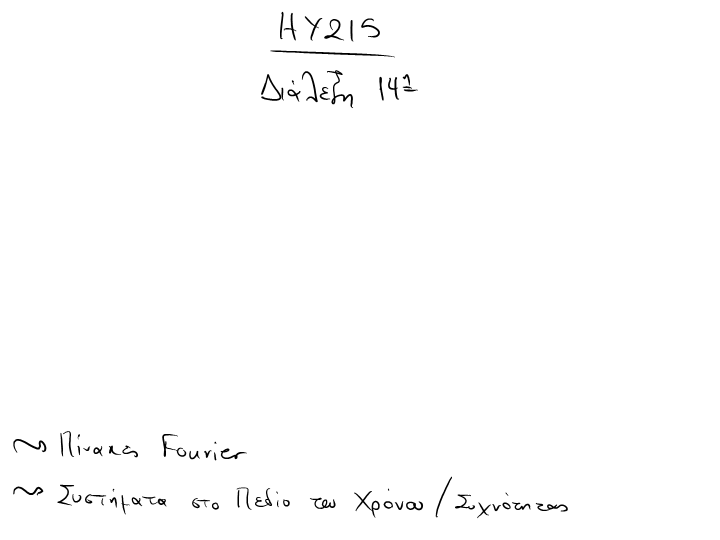 ΗΥ215
Διάλεξη 14η
~> Πίνακες Fourier
~> Συστήματα στο Πεδίο του Χρόνου / Συχνότητας